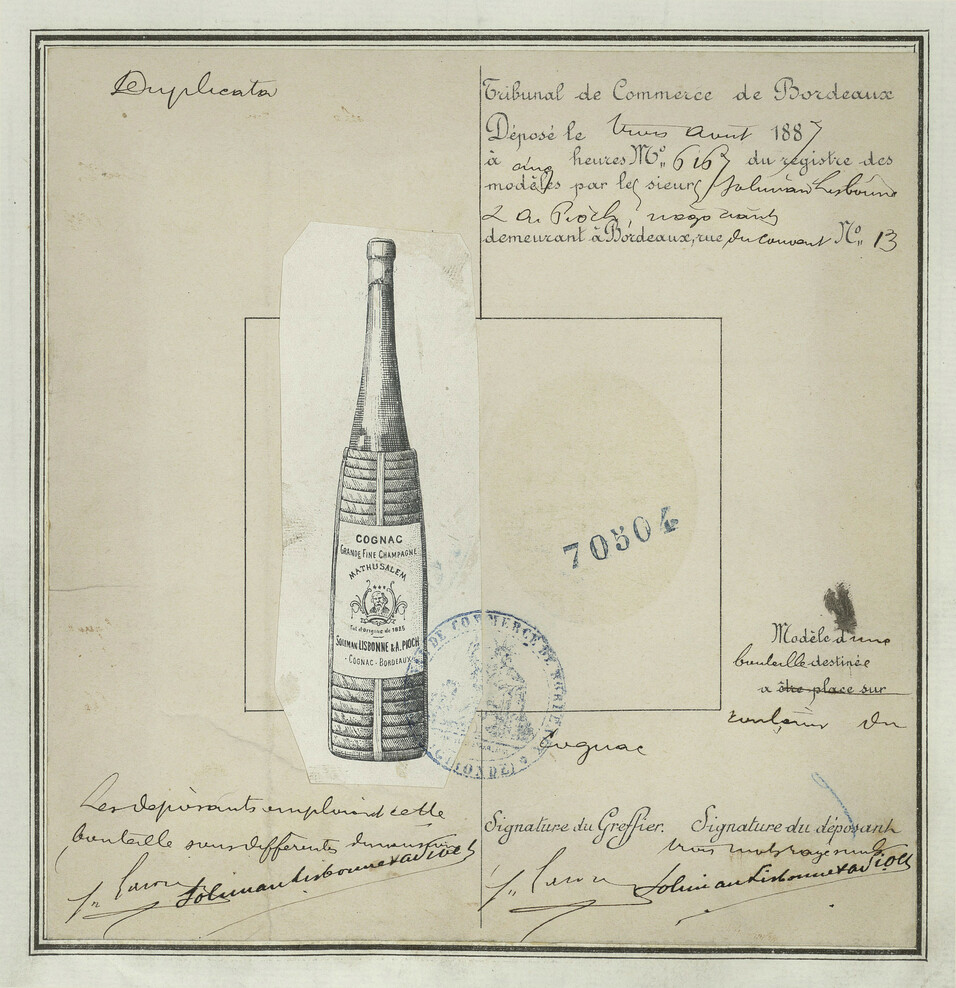 Duplicata
Tribunal de Commerce de Bordeaux
Déposé le trois août 1887
à cinq heures N° 6167 du registre des
modèles par les sieurs Soliman Lisbonne
& A. Pioch, négociants
demeurant à Bordeaux, rue du couvent N° 13
COGNAC
GRANDE FINE CHAMPAGNE
MATHUSALEM
SOLIMAN LISBONNE & A. PIOCH
- COGNAC - BORDEAUX -
70504
TRIBUNAL DE COMMERCE DE BORDEAUX
(GIRONDE)
Modèle d'une
bouteille destinée
a être place sur
contenir du
Cognac
Les déposants emploient cette
bouteille sous différentes dimensions
Soliman Lisbonne & A Pioch
Signature du Greffier. Signature du déposant
trois mots rayés nuls
Soliman Lisbonne & A Pioch